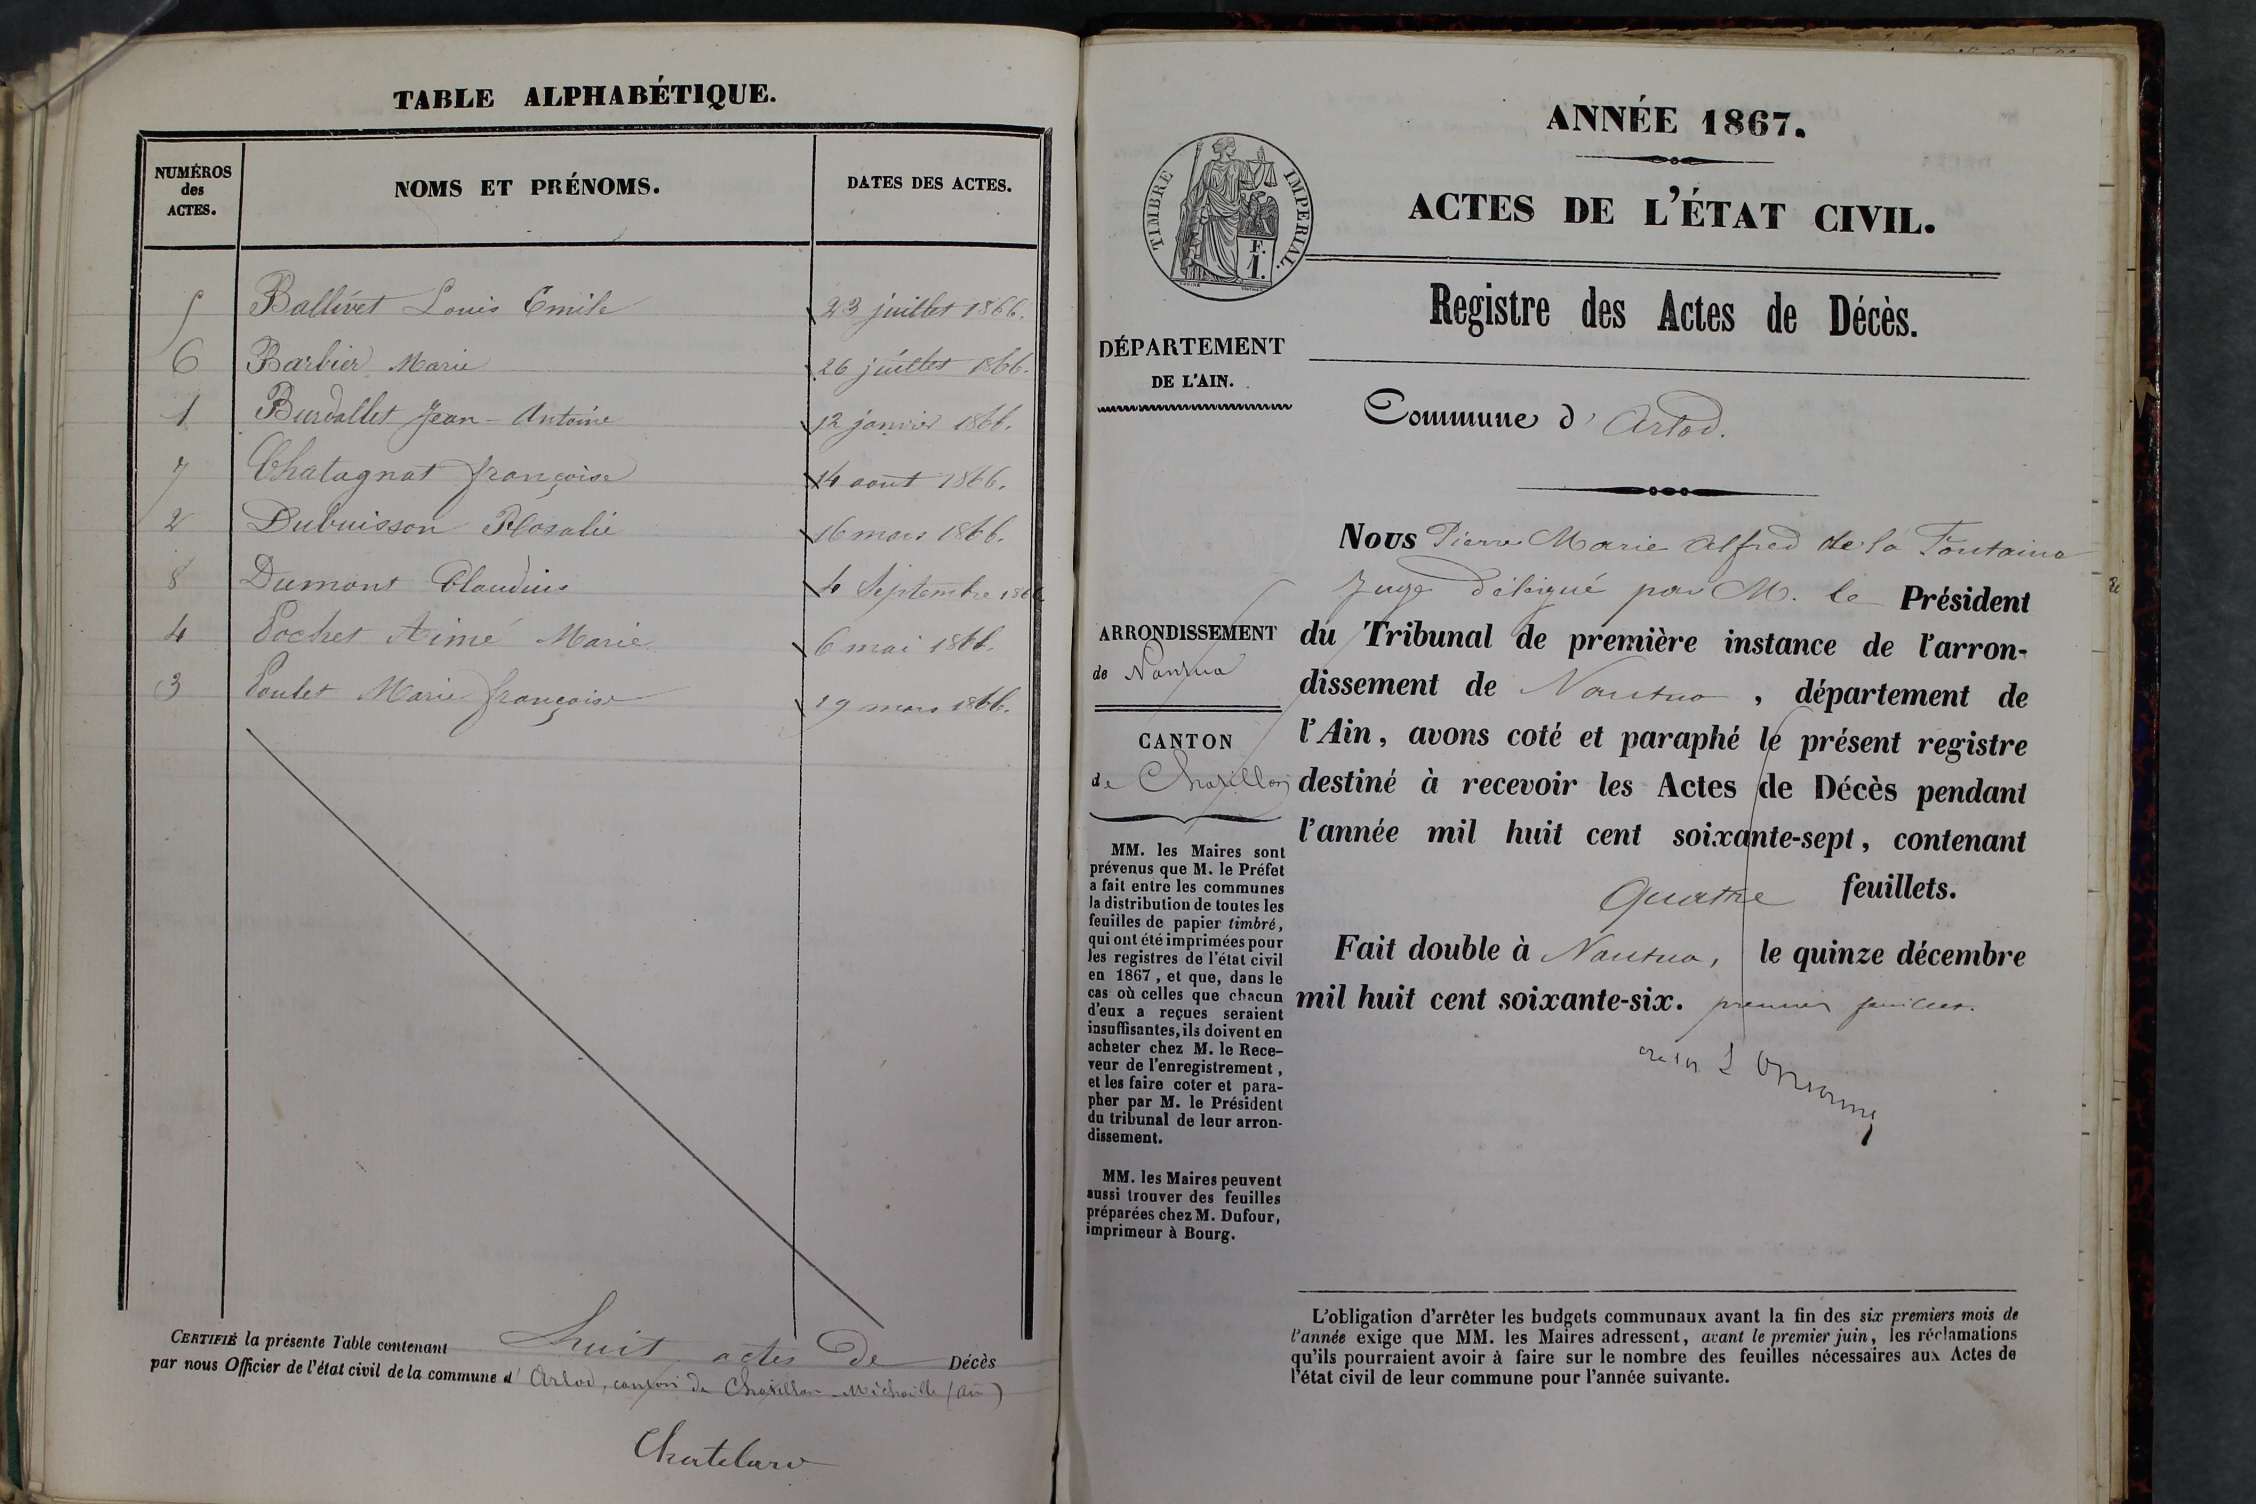 TABLE ALPHABÉTIQUE.
NUMÉROS des ACTES. NOMS ET PRÉNOMS. DATES DES ACTES.
5 Ballivet Louis Emile 23 juillet 1866.
6 Barbier Marie 26 juillet 1866.
1 Burdallet Jean-Antoine 12 janvier 1866.
7 Chatagnat françoise 14 août 1866.
2 Dubuisson Rosalie 16 mars 1866.
8 Dumont Claudius 4 Septembre 1866
4 Pochet Aimé Marie 6 mai 1866.
3 Poulet Marie françoise 19 mars 1866.
CERTIFIÉ la présente Table contenant huit actes de Décès
par nous Officier de l'état civil de la commune d' Arlod, canton de Chatillon-Michaille (Ain)
Chatelard
ANNÉE 1867.
ACTES DE L'ÉTAT CIVIL.
TIMBRE IMPERIAL.
F.
1.
Registre des Actes de Décès.
DÉPARTEMENT
DE L'AIN.
Commune d' Arlod.
Nous Pierre Marie Alfred de la Fontaine
Juge délégué par M. le Président
du Tribunal de première instance de l'arron-
dissement de Nantua, département de
l'Ain, avons coté et paraphé le présent registre
destiné à recevoir les Actes de Décès pendant
l'année mil huit cent soixante-sept, contenant
Quatre feuillets.
Fait double à Nantua, le quinze décembre
mil huit cent soixante-six. premier feuillet.
ARRONDISSEMENT
de Nantua
CANTON
de Chatillon
MM. les Maires sont
prévenus que M. le Préfet
a fait entre les communes
la distribution de toutes les
feuilles de papier timbré,
qui ont été imprimées pour
les registres de l'état civil
en 1867, et que, dans le
cas où celles que chacun
d'eux a reçues seraient
insuffisantes, ils doivent en
acheter chez M. le Rece-
veur de l'enregistrement,
et les faire coter et para-
pher par M. le Président
du tribunal de leur arron-
dissement.
MM. les Maires peuvent
aussi trouver des feuilles
préparées chez M. Dufour,
imprimeur à Bourg.
L'obligation d'arrêter les budgets communaux avant la fin des six premiers mois de
l'année exige que MM. les Maires adressent, avant le premier juin, les réclamations
qu'ils pourraient avoir à faire sur le nombre des feuilles nécessaires aux Actes de
l'état civil de leur commune pour l'année suivante.